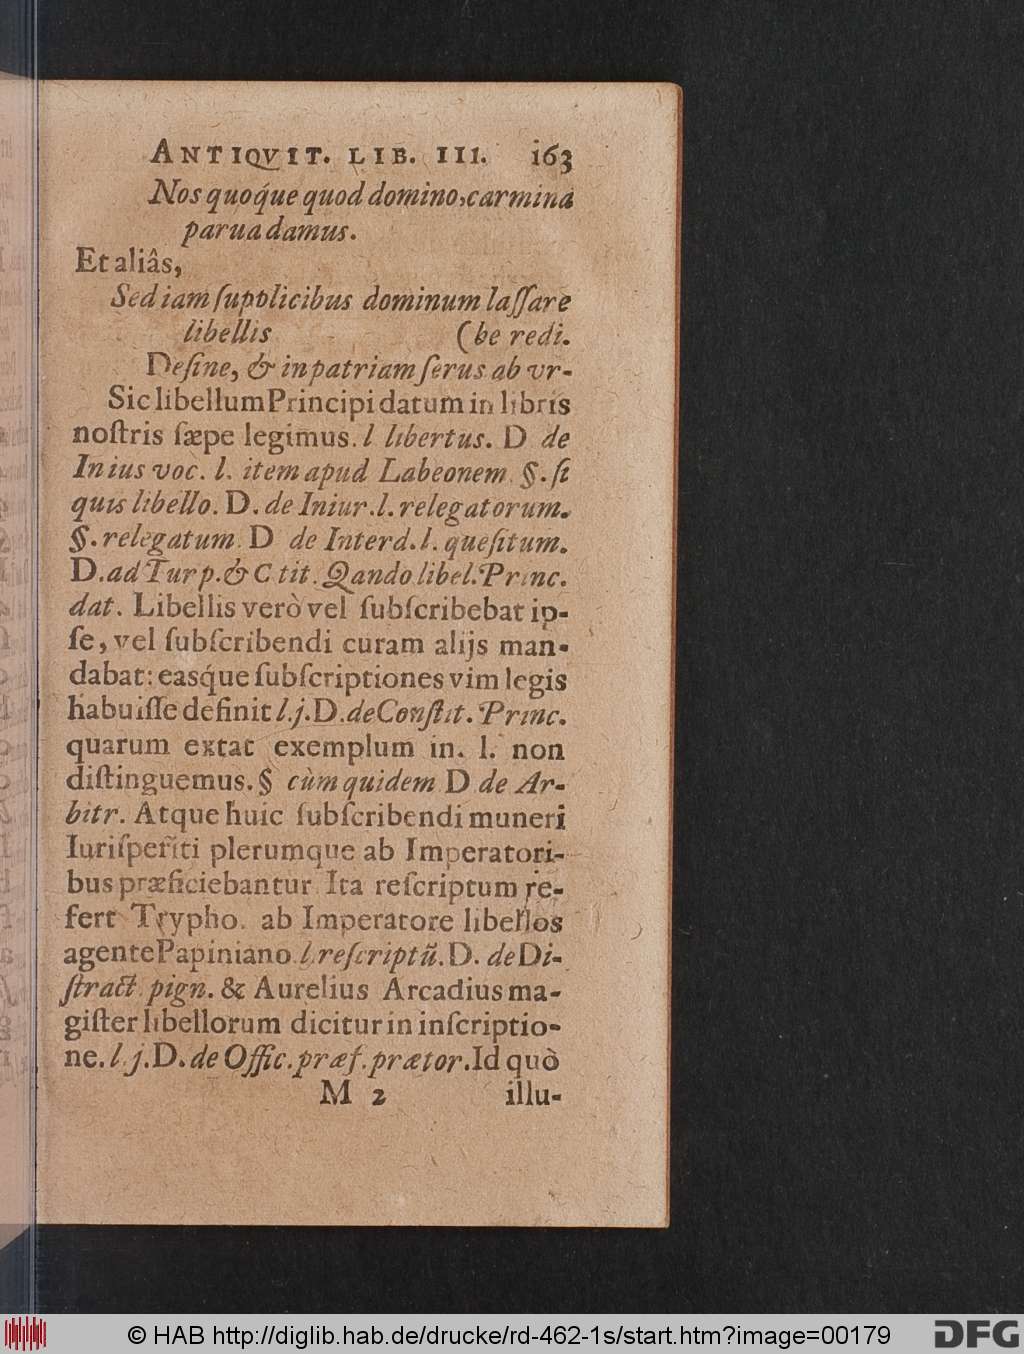 ANTIQVIT. LIB. III. 163
Nos quoq́ue quod domino, carmina
parua damus.
Et aliâs,
Sed iam ſupplicibus dominum laſſare
libellis (be redi.
Deſine, & in patriam ſerus ab vr-
Sic libellum Principi datum in libris
noſtris ſæpe legimus. l libertus. D de
In ius voc. l. item apud Labeonem §. ſi
quis libello. D. de Iniur. l. relegatorum.
§. relegatum. D de Interd. l. queſitum.
D. ad Turp. & C tit. Qando libel. Princ.
dat. Libellis verò vel ſubſcribebat ip-
ſe, vel ſubſcribendi curam alijs man-
dabat: easq́ue ſubſcriptiones vim legis
habuiſſe definit l. j. D. de Conſtit. Princ.
quarum extat exemplum in. l. non
diſtinguemus. § cùm quidem D de Ar-
bitr. Atque huic ſubſcribendi muneri
Iuriſperiti plerumque ab Imperatori-
bus præficiebantur. Ita reſcriptum re-
fert Trypho. ab Imperatore libellos
agente Papiniano l. reſcriptũ. D. de Di-
ſtract. pign. & Aurelius Arcadius ma-
giſter libellorum dicitur in inſcriptio-
ne. l. j. D. de Offic. præf. prætor. Id quò
M 2 illu-
© HAB http://diglib.hab.de/drucke/rd-462-1s/start.htm?image=00179
DFG